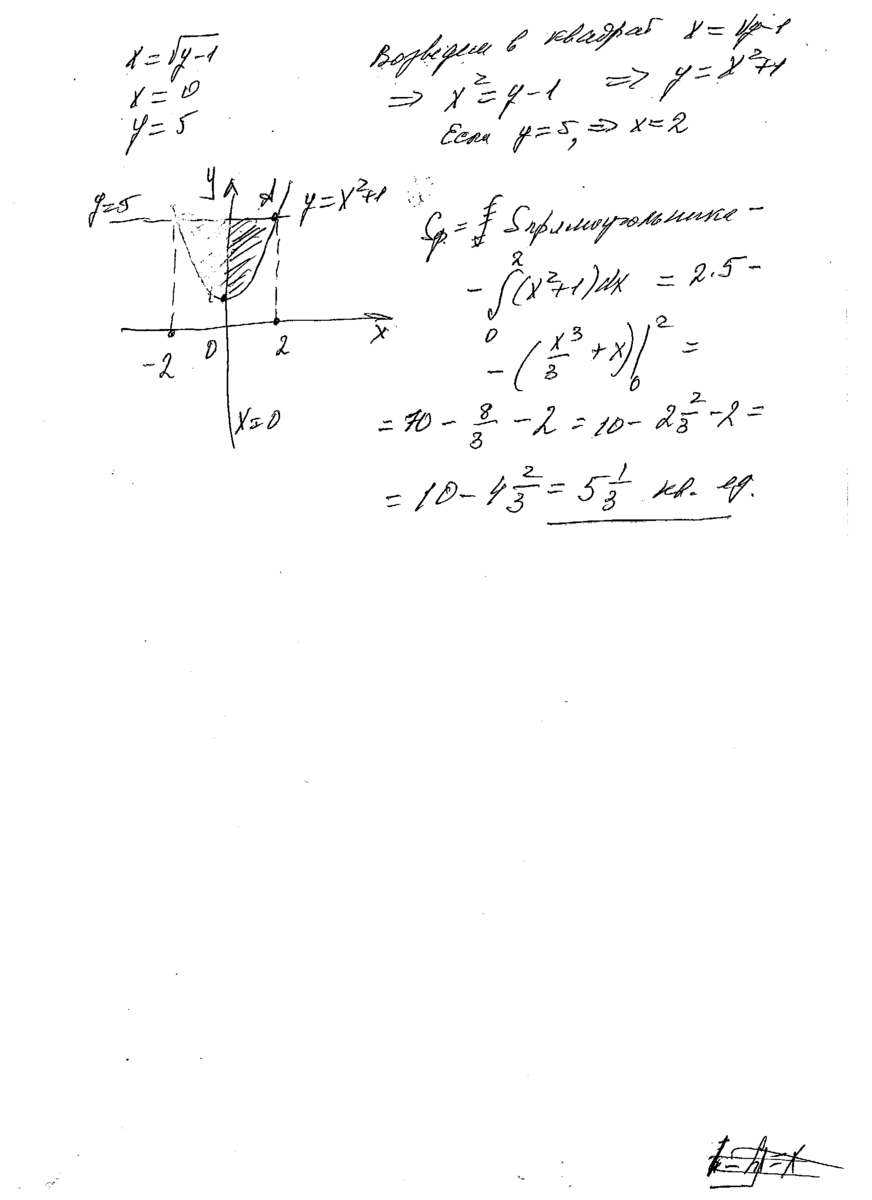 x = √(y-1)
x = 0
y = 5
Возведем в квадрат x = √(y-1)
=> x² = y - 1 => y = x² + 1
Если y = 5, => x = 2
y
y=5
y = x²+1
-2 0 2 x
x=0
Sф. = Sпрямоугольника -
- ∫₀² (x²+1)dx = 2·5 -
- (x³/3 + x)|₀² =
= 10 - 8/3 - 2 = 10 - 2 2/3 - 2 =
= 10 - 4 2/3 = 5 1/3 кв. ед.